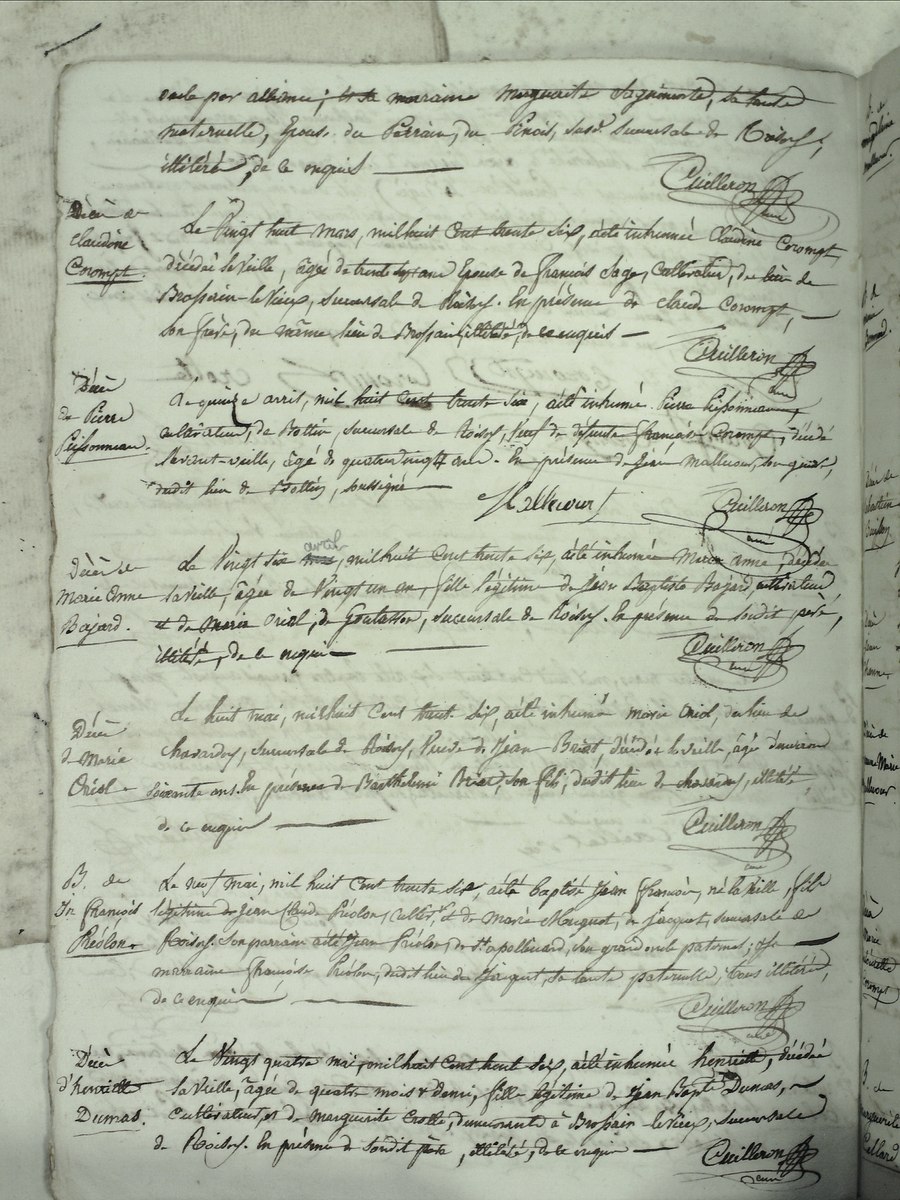 oncle par alliance; et sa marraine Marguerite Sagnimorte, sa tante
maternelle, Epouse du Parrain, du Pinois, susd. succursale de Roisey,
illitéré, de ce enquis
Cuilleron
curé
Décès de
Claudine
Corompt.
Le Vingt huit mars, mil huit cent trente six, a été inhumée Claudine Corompt
décédée la veille, âgée de trente ans Epouse de François Sage, cultivateur, du lieu de
Brossain-le vieux, succursale de Roisey. En présence de Claude Corompt,
son frère, du même lieu de Brossain illitéré, de ce enquis
Cuilleron
curé
Décès
de Pierre
Peissonneau.
Le quinze avril, mil huit cent trente six, a été inhumé Pierre Peissonneau,
cultivateur, de Bottin, succursale de Roisey, Veuf de défunte Françoise Corompt, décédé
l'avant-veille, âgé de quatre vingt ans. En présence de Jean Mallecour, son gendre,
dudit lieu de Bottin, soussigné
Mallecourt
Cuilleron
curé
Décès de
Marie Anne
Bajard.
avril
Le Vingt six mai, mil huit cent trente six, a été inhumée Marie anne, décédée
la veille, âgée de Vingt un an, fille légitime de Jean Baptiste Bajard, cultivateur
et de Marie Oriol, de Goutasson, succursale de Roisey. En présence de sudit père,
illitéré, de ce enquis
Cuilleron
curé
Décès
de Marie
Oriol
Le huit mai, mil huit cent trente six, a été inhumée Marie Oriol, du lieu de
succursale de Roisey, Veuve de Jean Briat, décédée la veille, âgée d'environ
soixante ans. En présence de Barthelemi Briat, son fils, dudit lieu de illitéré,
de ce enquis
Cuilleron
curé
B. de
Jn François
Réolon.
Le neuf mai, mil huit cent trente six, a été baptisé Jean François, né la veille, fils
légitime de Jean Claude Réolon, cultivr. et de Marie Muguet, de Jacquet, succursale de
Roisey. Son parrain a été Jean Réolon, de St apollinard, son grand oncle paternel; et sa
marraine Françoise Réolon, dudit lieu de Jacquet, sa tante paternelle, tous illitérés,
de ce enquis
Cuilleron
curé
Décès
d'henriette
Dumas.
Le Vingt quatre mai, mil huit cent trente six, a été inhumée henriette, décédée
la veille, âgée de quatre mois & demi, fille légitime de Jean Bapte Dumas,
cultivateur, et de Marguerite Crolle, demeurants à Brossain le vieux, succursale
de Roisey. En présence de sondit père, illitéré, de ce enquis
Cuilleron
curé